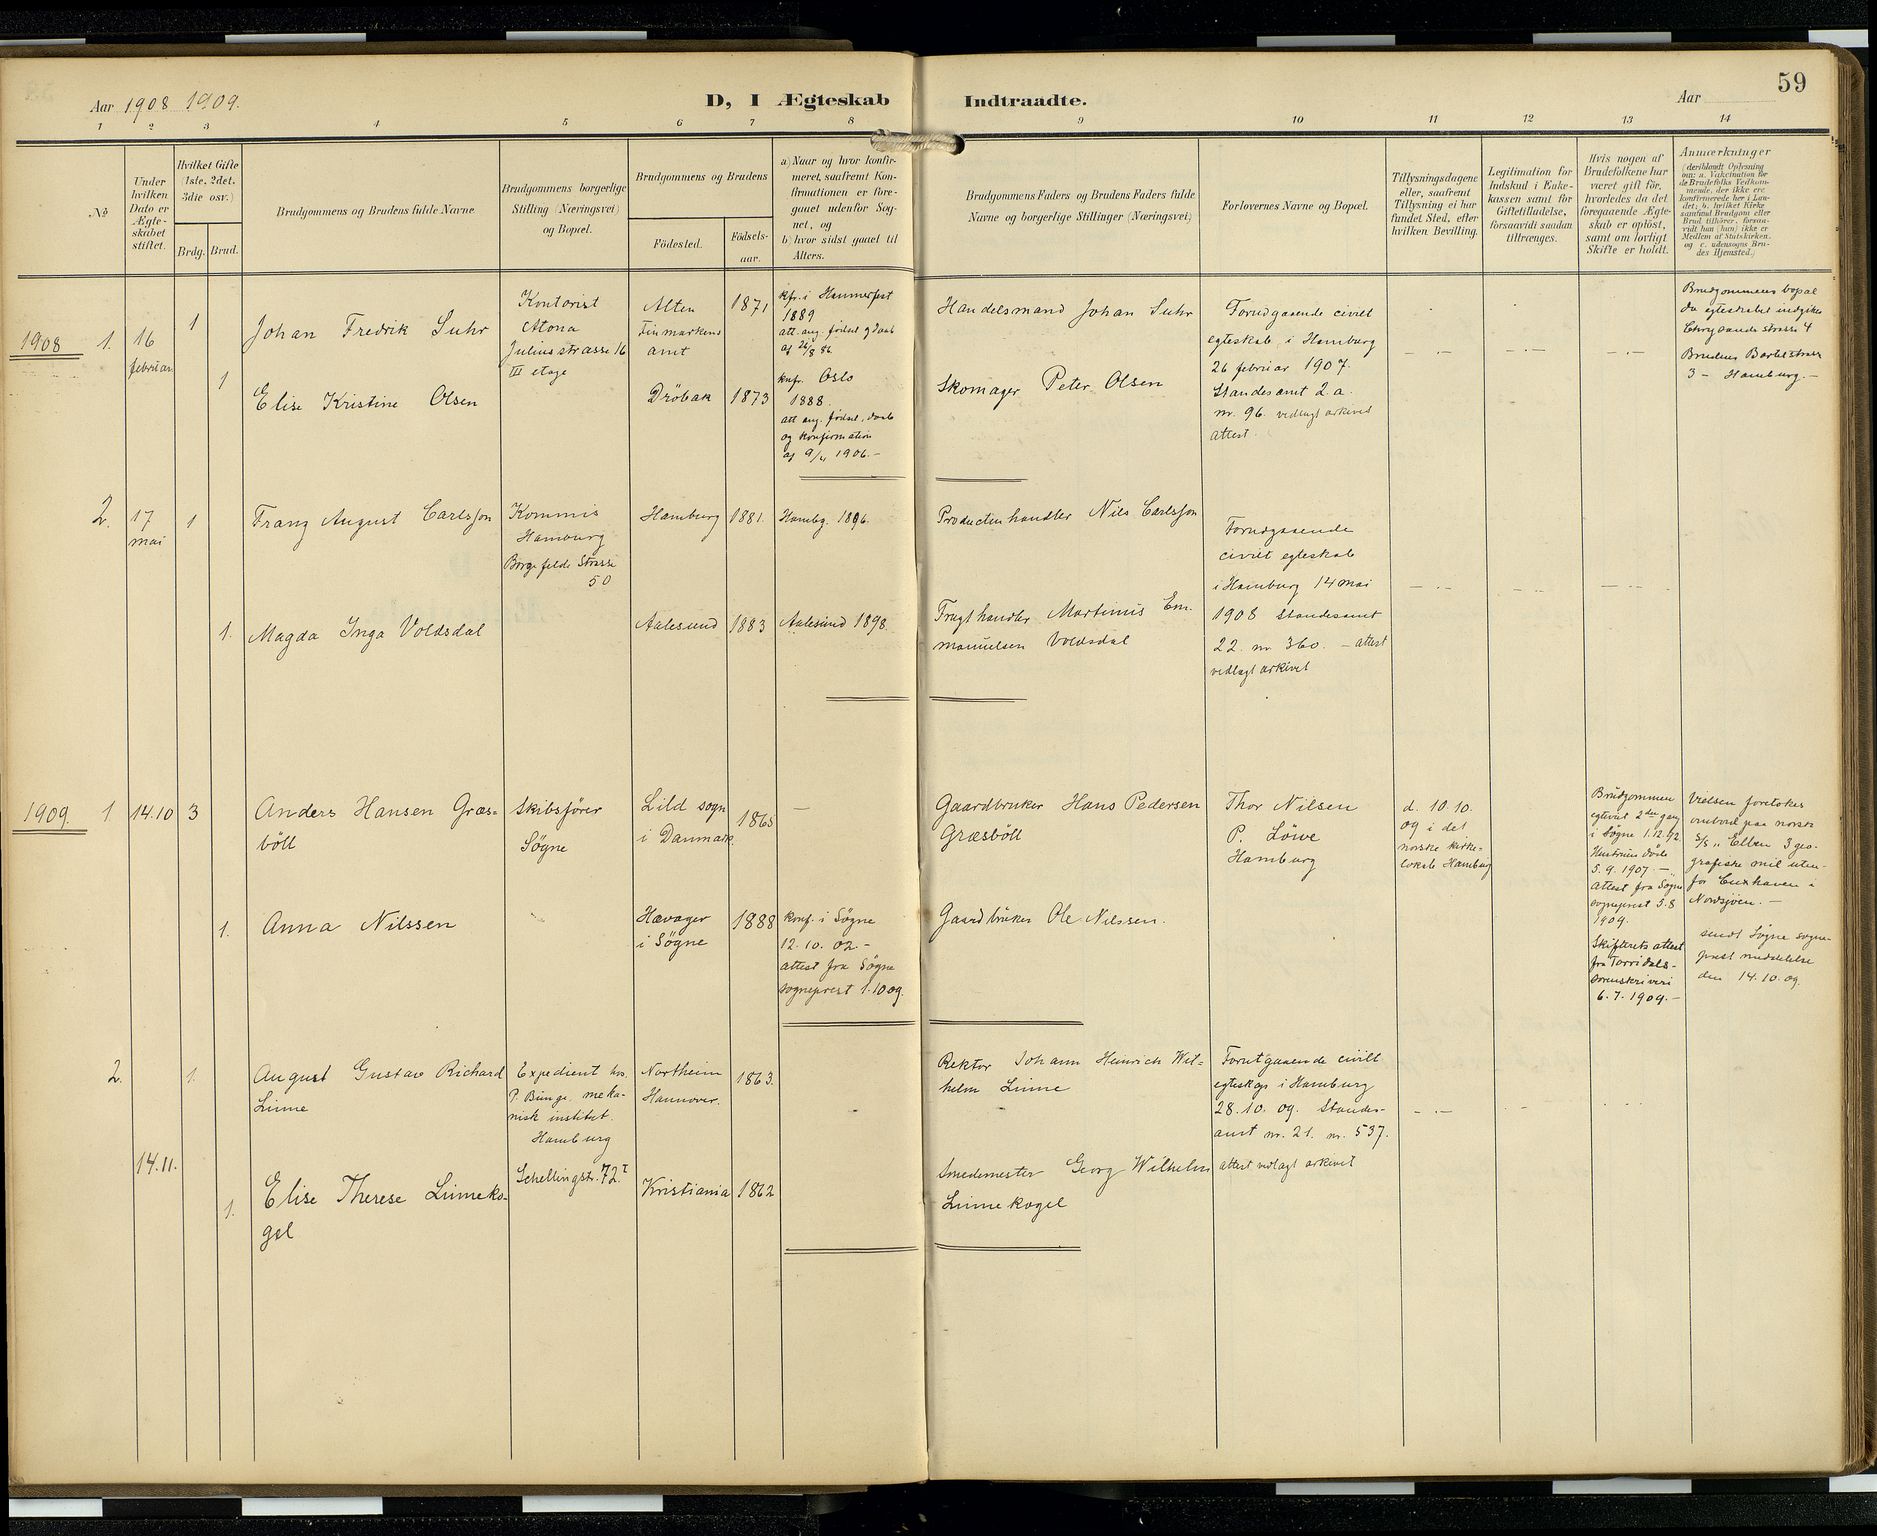 59
Aar 1908 1909.
D, I Ægteskab Indtraadte.
Aar
1 2 3 4 5 6 7 8 9 10 11 12 13 14
No
Under
hvilken
Dato er
Ægte-
skabet
stiftet.
Hvilket Gifte
(1ste, 2det,
3die osv.)
Brdg. Brud.
Brudgommens og Brudens fulde Navne
Brudgommens borgerlige
Stilling (Næringsvei)
og Bopæl.
Brudgommens og Brudens
Födested.
Födsels-
aar.
a) Naar og hvor konfir-
meret, saafremt Kon-
firmationen er fore-
gaaet udenfor Sog-
net, og
b) hvor sidst gaaet til
Alters.
Brudgommens Faders og Brudens Faders fulde
Navne og borgerlige Stillinger (Næringsvei)
Forlovernes Navne og Bopæl.
Tillysningsdagene
eller, saafremt
Tillysning ei har
fundet Sted, efter
hvilken Bevilling.
Legitimation for
Indskud i Enke-
kassen samt for
Giftetilladelse,
forsaavidt saadan
tiltrænges.
Hvis nogen af
Brudefolkene har
været gift för,
hvorledes da det
foregaaende Ægte-
skab er oplöst,
samt om lovligt
Skifte er holdt.
Anmærkninger
(deriblandt Oplysning
om: a. Vakcination for
de Brudefolks Vedkom-
mende, der ikke ere
konfirmerede her i Lan-
det; b. hvilket Kirke-
samfund Brudgom eller
Brud tilhörer, forsaa-
vidt han (hun) ikke er
Medlem af Statskirken.
og c. udensogns Bru-
des Hjemsted.)
1908 1. 16
februar
1
Johan Fredrik Suhr
Kontorist
Altona
Juliusstrasse 16
III etage
Alten
Finmarkens
amt
1871
kfr. i Hammerfest
1889
att. ang. fødsel og daab
af 26/8 86
Handelsmand Johan Suhr
Forudgaaende civilt
egteskab i Hamburg
26 februar 1907.
Standesamt 2 a.
nr. 96. vedlagt arkivet
attest.
Brudgommens bopal
da egteskabet indgikes
Chrysanderstrasse 4
Brudens
3 - Hamburg. -
1
Elise Kristine Olsen
Dröbak 1873
knfr. Oslo
1888.
att ang. fødsel, daab
og konfirmation
af 9/4 1906. -
Skomager Peter Olsen
2. 17
mai
1
Franz August Carlsson
Kommis
Hamburg
Borgfelde Strasse
50
Hamburg 1881. Hambg. 1896.
Productenhandler Nils Carlsson
Forudgaaende
civilt egteskab
i Hamburg 14 mai
1908 Standesamt
22. nr. 360. - attest
vedlagt arkivet
1.
Magda Inga Voldsdal
Aalesund 1883 Aalesund 1898.
Fragthandler Martinus Em-
manuelsen Voldsdal
1909. 1 14.10 3
Anders Hansen Græs-
böll
Skibsfører
Søgne
Lild sogn
i Danmark.
1865
Gaardbruker Hans Pedersen
Græsböll
Thor Nilsen
P. Löwe
Hamburg
d. 10.10.
og i det
norske kirke-
lokale Hamburg
Brudgommen
egteviet 2den gang
i Søgne 1.12.92
Hustruen døde
5.9.1907. -
attest fra Søgne
sogneprest 5.8
1909.
Skifterets attest
fra Torridals-
sorenskriveri
6.7.1909. -
Vielsen foretokes
ombord paa norsk
S/S "Elben" 3 geo-
grafiske mil uten-
for Cuxhaven i
Nordsjöen. -
sendt Søgne sogne-
prest meddelelse
den 14.10.09.
1.
Anna Nilssen
Havager
i Søgne
1888
konf. i Søgne
12.10.02. -
attest fra Søgne
sogneprest 1.10 09.
Gaardbruker Ole Nilssen.
2. 14.11.
1.
August Gustav Richard
Linne
Expedient hos.
P. Bunge, meka-
nisk institut.
Hamburg
Schellingstr. 72 I
Northeim
Hannover.
1863.
Rektor Johann Heinrich Wil-
helm Linne
Forutgaaende civilt
egteskap i Hamburg
28.10.09. Standes-
amt nr. 21. nr. 537.
attest vedlagt arkivet
1.
Elise Therese Linneko-
gel
Kristiania 1862
Smedemester Georg Wilhelm
Linnekogel